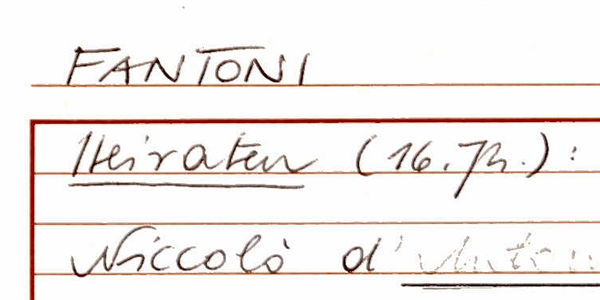 FANTONI
Heiraten (16. Jh.):
Niccolò d'